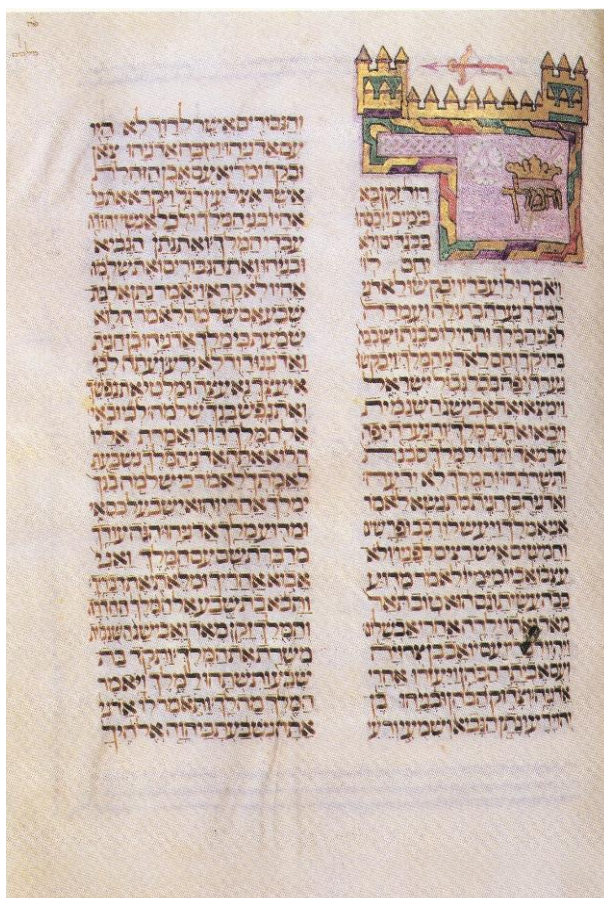 מלכים
והמלך
דוד זקן בא
בימים ויכסהו
בבגדים ולא
יחם לו
ויאמרו לו עבדיו יבקשו לאדני
המלך נערה בתולה ועמדה
לפני המלך ותהי לו סכנת ושכבה
בחיקך וחם לאדני המלך ויבקשו
נערה יפה בכל גבול ישראל
וימצאו את אבישג השונמית
ויבאו אתה למלך והנערה יפה
עד מאד ותהי למלך סכנת
ותשרתהו והמלך לא ידעה
ואדניה בן חגית מתנשא לאמר
אני אמלך ויעש לו רכב ופרשים
וחמשים איש רצים לפניו ולא
עצבו אביו מימיו לאמר מדוע
ככה עשית וגם הוא טוב תאר
מאד ואתו ילדה אחרי אבשלום
ויהיו דבריו עם יואב בן צרויה
ועם אביתר הכהן ויעזרו אחרי
אדניה וצדוק הכהן ובניהו בן
יהוידע ונתן הנביא ושמעי ורעי
והגבורים אשר לדוד לא היו
עם אדניהו ויזבח אדניהו צאן
ובקר ומריא עם אבן הזחלת
אשר אצל עין רגל ויקרא את כל
אחיו בני המלך ולכל אנשי יהודה
עבדי המלך ואת נתן הנביא
ובניהו ואת הגבורים ואת שלמה
אחיו לא קרא ויאמר נתן אל בת
שבע אם שלמה לאמר הלוא
שמעת כי מלך אדניהו בן חגית
ואדנינו דוד לא ידע ועתה לכי
איעצך נא עצה ומלטי את נפשך
ואת נפש בנך שלמה לכי ובאי
אל המלך דוד ואמרת אליו
הלוא אתה אדני המלך נשבעת
לאמתך לאמר כי שלמה בנך
ימלך אחרי והוא ישב על כסאי
ומדוע מלך אדניהו הנה עודך
מדברת שם עם המלך ואני
אבוא אחריך ומלאתי את דבריך
ותבא בת שבע אל המלך החדרה
והמלך זקן מאד ואבישג השונמית
משרת את המלך ותקד בת
שבע ותשתחו למלך ויאמר
המלך מה לך ותאמר לו אדני
אתה נשבעת ביהוה אלהיך